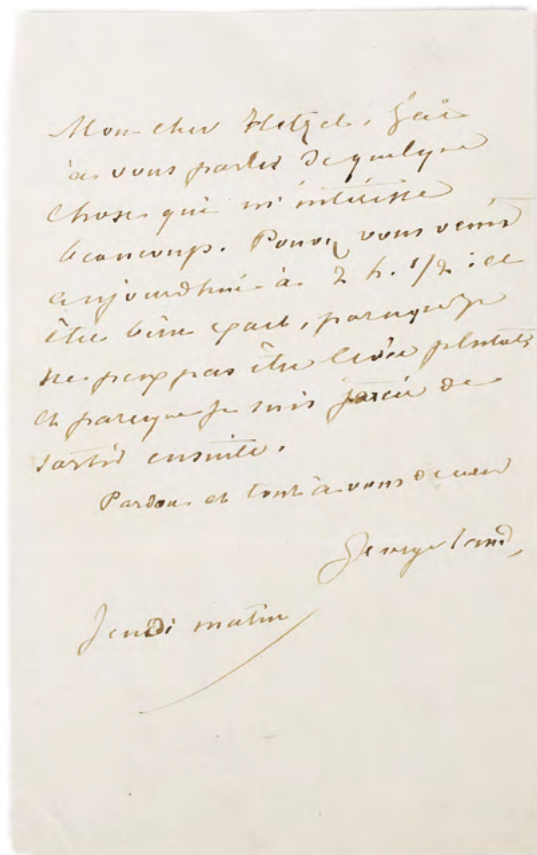 Mon cher Hetzel, j'ai
à vous parler de quelque
chose qui m'intéresse
beaucoup. Pouvez vous venir
aujourdhui à 2 h. 1/2 : et
être bien exact, parceque je
ne peux pas être levée plutôt
et parceque je suis forcée de
sortir ensuite.
Pardon et tout à vous de cœur
George Sand
Jeudi matin